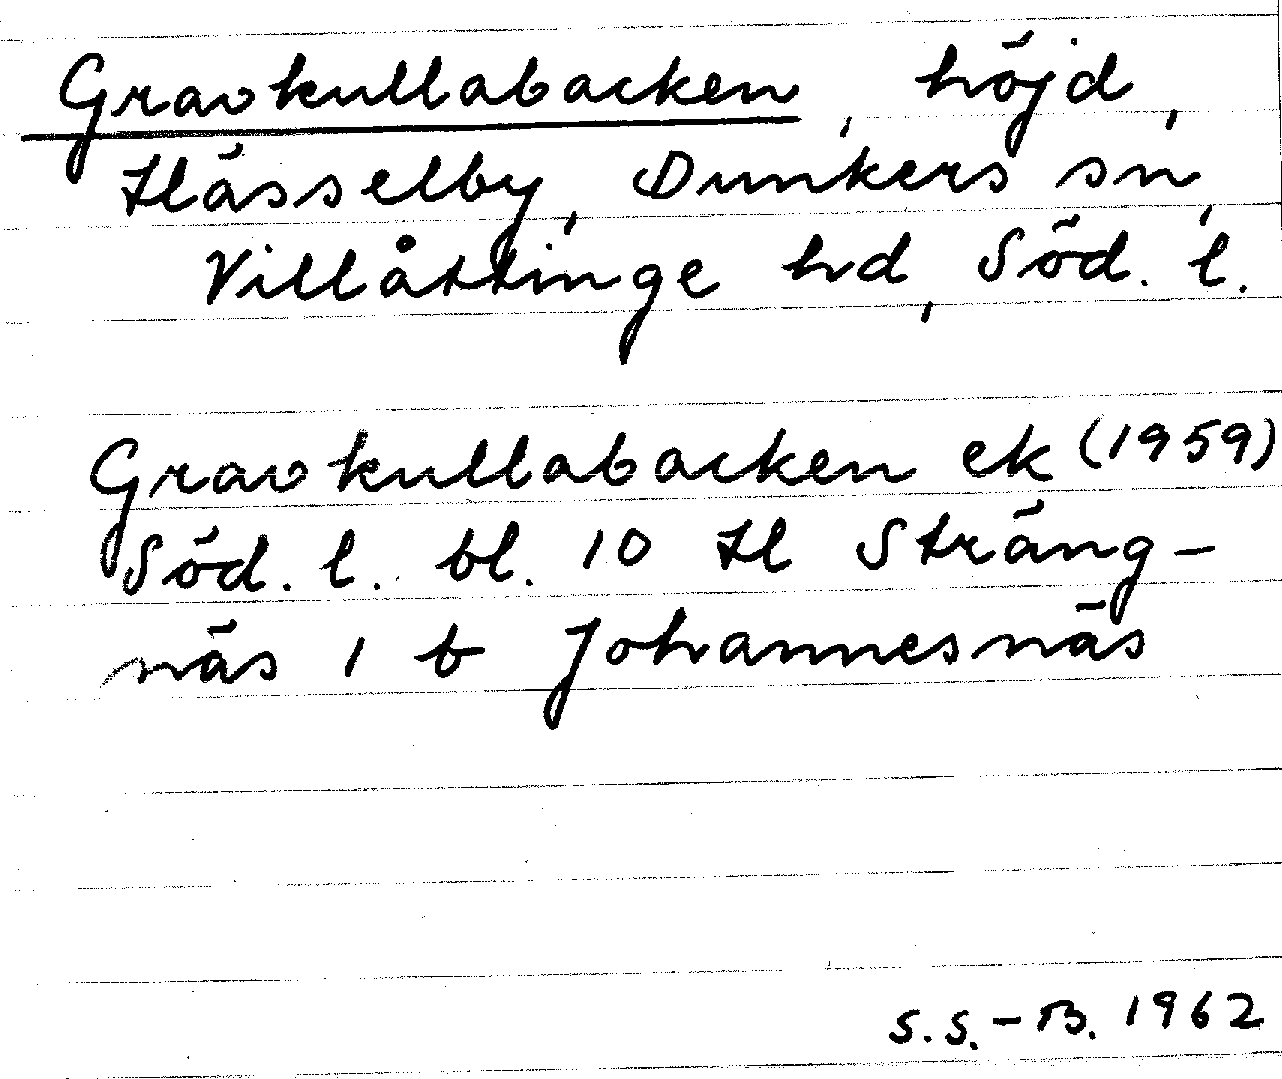 Gravkullabacken, höjd,
Hässelby, Dunkers sn,
Villåttinge hd, Söd. l.
Gravkullabacken ek (1959)
Söd. l. bl. 10 H Sträng-
näs 1 b Johannesnäs
S.S.-B. 1962